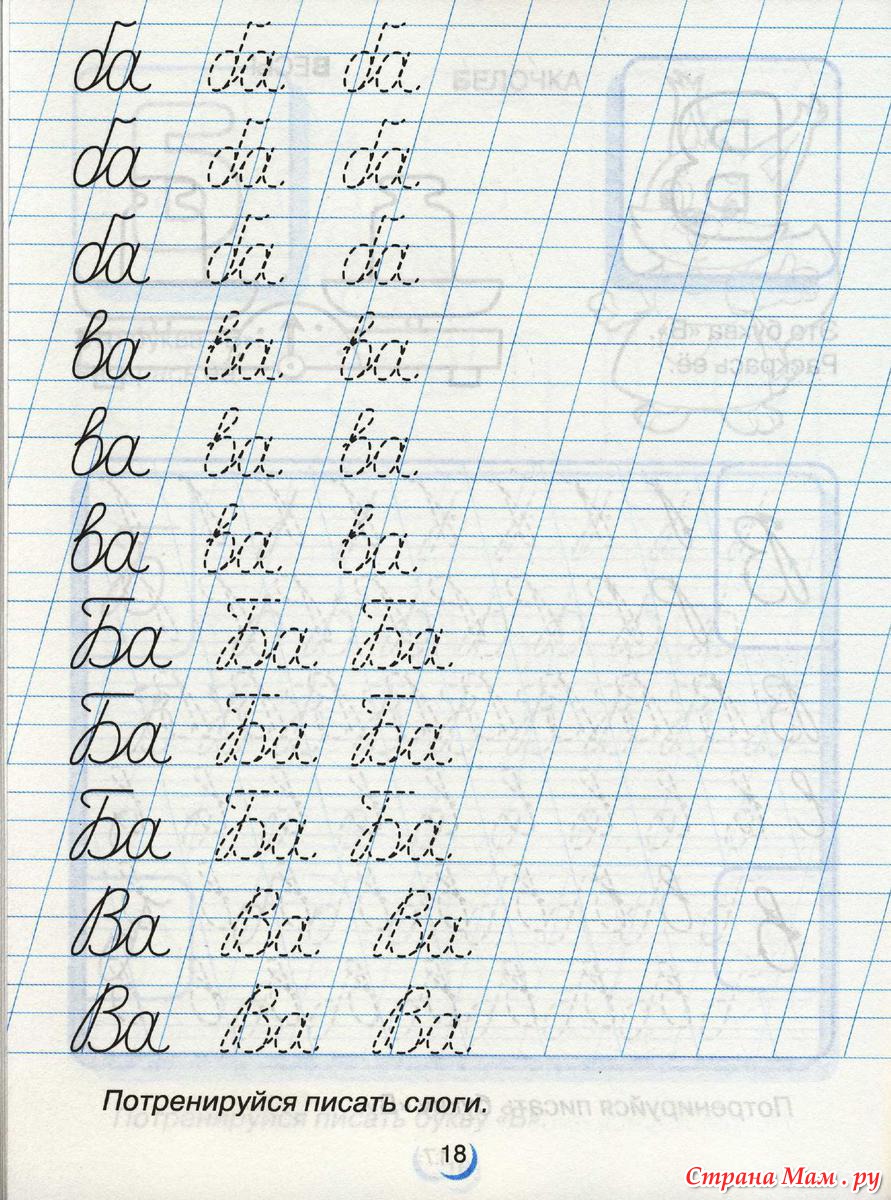 ба ба ба
ба ба ба
ба ба ба
ва ва ва
ва ва ва
ва ва ва
Ба Ба Ба
Ба Ба Ба
Ба Ба Ба
Ва Ва Ва
Ва Ва Ва
Потренируйся писать слоги.
18
Страна Мам . ру